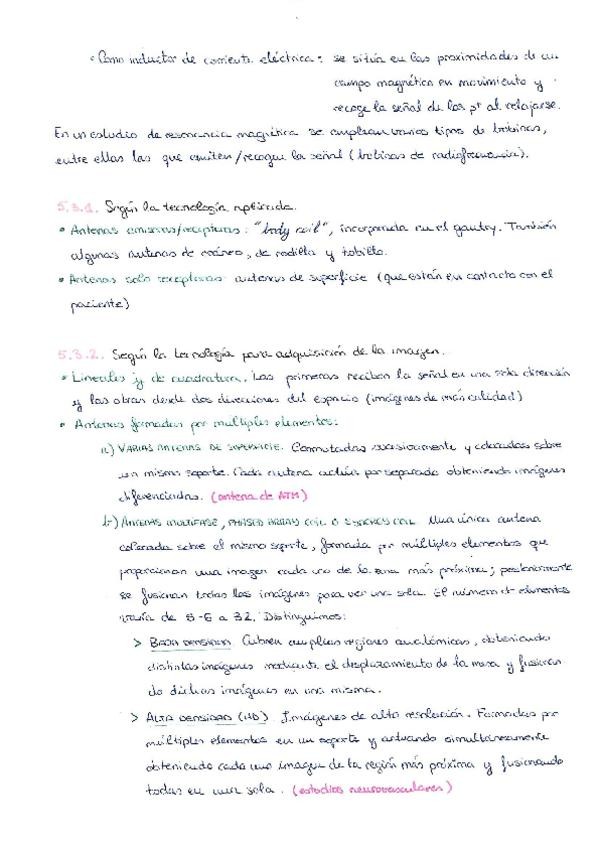 • Como inductor de corriente eléctrica: se sitúa en las proximidades de un
campo magnético en movimiento y
recoge la señal de los pt al relajarse.
En un estudio de resonancia magnética se emplean varios tipos de bobinas,
entre ellas las que emiten/recogen la señal (bobinas de radiofrecuencia).
5.3.1. Según la tecnología aplicada.
• Antenas emisoras/receptoras: "body coil", incorporada en el gantry. También
algunas antenas de cráneo, de rodilla y tobillo.
• Antenas solo receptoras: antenas de superficie (que están en contacto con el
paciente)
5.3.2. Según la tecnología para adquisición de la imagen.
• Lineales y de cuadratura. Las primeras reciben la señal en una sola dirección
y las otras desde dos direcciones del espacio (imágenes de más calidad)
• Antenas formadas por múltiples elementos:
a) VARIAS ANTENAS DE SUPERFICIE. Conmutadas sucesivamente y colocadas sobre
un mismo soporte. Cada antena actúa por separado obteniendo imágenes
diferenciadas. (antena de ATM)
b) ANTENAS MULTIFASE, PHASED ARRAY COIL O SYNERGY COIL Una única antena
colocada sobre el mismo soporte, formada por múltiples elementos que
proporcionan una imagen cada uno de la zona más próxima; posteriormente
se fusionan todas las imágenes para ver una sola. El número d elementos
varía de 5-6 a 32. Distinguimos:
> BAJA DENSIDAD Cubren amplias regiones anatómicas, obteniendo
distintas imágenes mediante el desplazamiento de la mesa y fusionan
do dichas imágenes en una misma.
> ALTA DENSIDAD (HD) Imágenes de alta resolución. Formadas por
múltiples elementos en un soporte y actuando simultáneamente
obteniendo cada uno imagen de la región más próxima y fusionando
todas en una sola. (estudios neurovasculares)